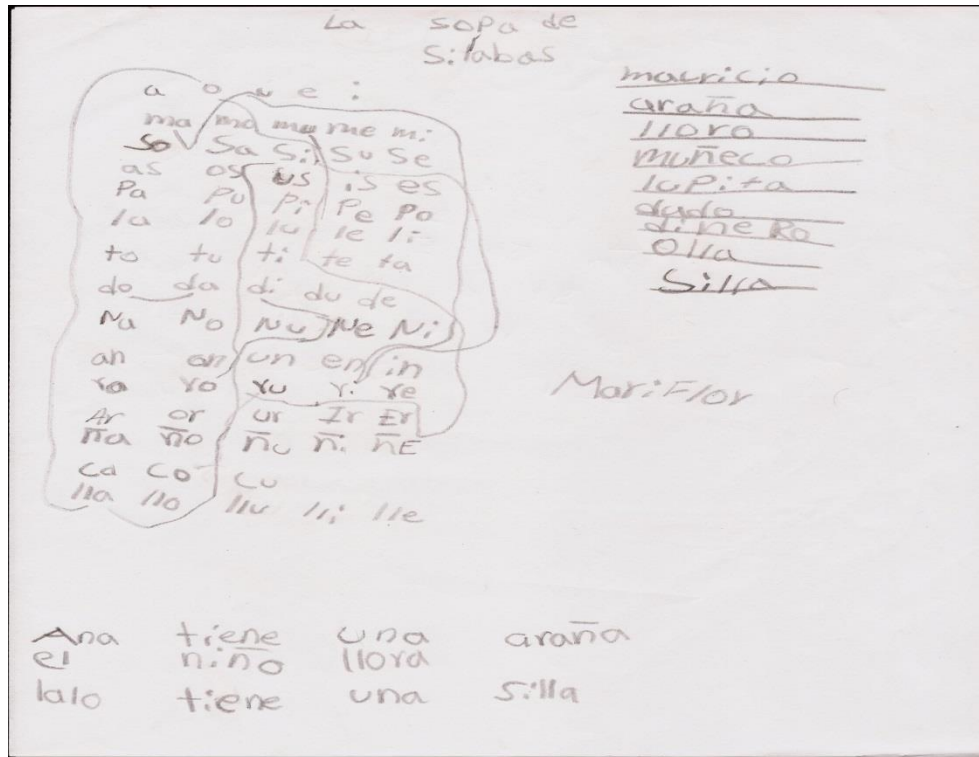 La sopa de
Silabas
a o u e i
ma mo mu me mi
So Sa Si Su Se
as os us is es
Pa Pu Pi Pe Po
la lo lu le li
to tu ti te ta
do da di du de
Na No Nu Ne Ni
an on un en in
ra ro ru ri re
Ar or ur Ir Er
ña ño ñu ñi ñE
ca co cu
lla llo llu lli lle
mauricio
araña
lloro
muñeco
lupita
dado
dineRo
Olla
Silla
MariFlor
Ana tiene una araña
el niño llora
lalo tiene una silla